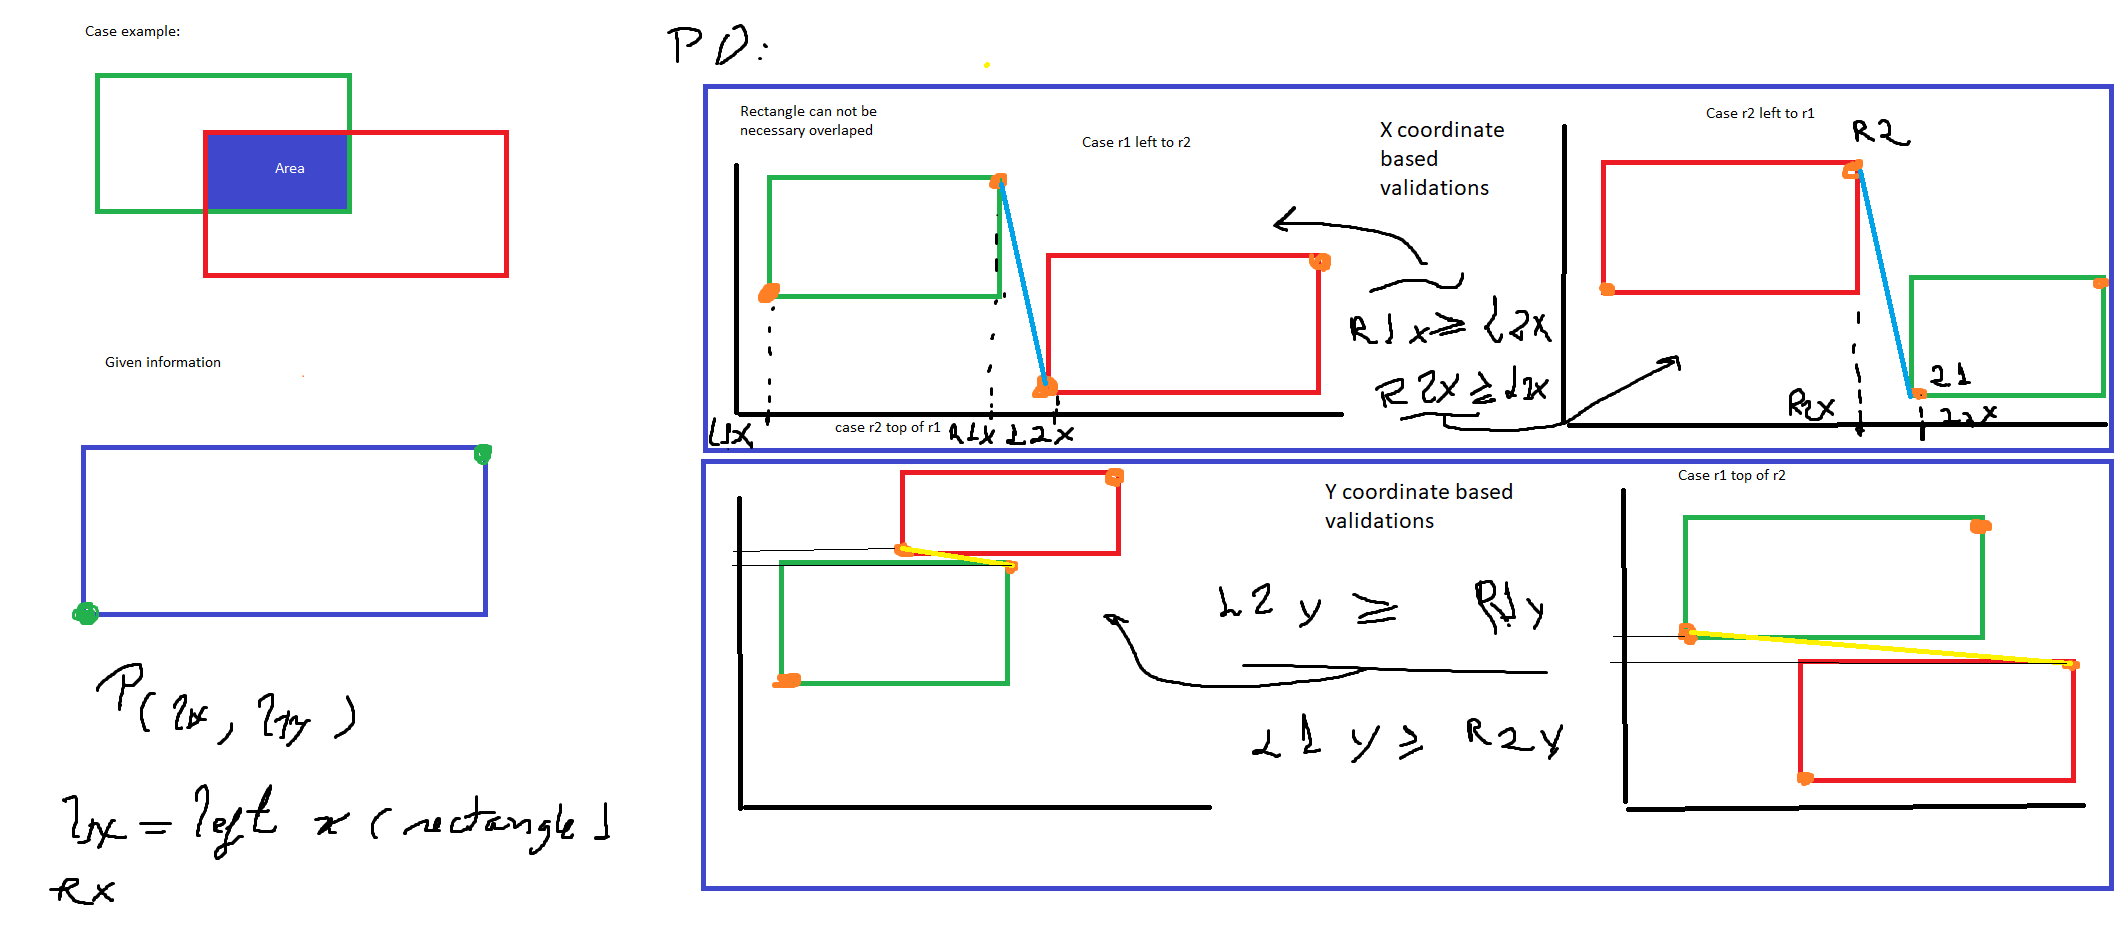 Case example:
Area
Given information
P(l1x, l1y)
l1x = left x (rectangle 1
RX
PD:
Rectangle can not be
necessary overlaped
Case r1 left to r2
X coordinate
based
validations
R1x ≥ L2x
R2x ≥ L1x
Case r2 left to r1
R2
L1
R2x
L1x
L1x
case r2 top of r1
R1x
L2x
Y coordinate based
validations
L2y ≥ R1y
L1y ≥ R2y
Case r1 top of r2